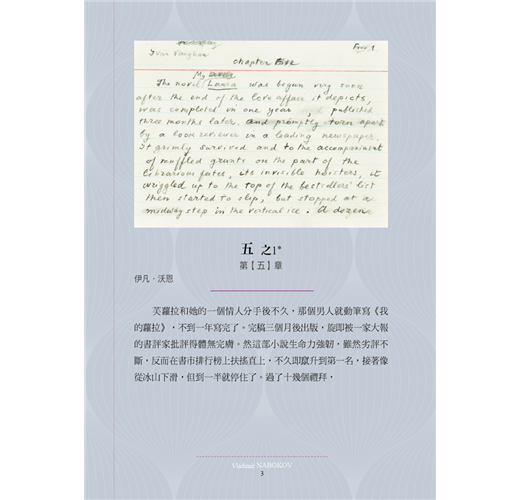 Five 1
Ivan Vaughan
Chapter Five
My
The novel Laura was begun very soon
after the end of the love affair it depicts,
was completed in one year, published
three months later, and promptly torn apart
by a book reviewer in a leading newspaper.
It grimly survived and to the accompaniment
of muffled grunts on the part of the
librarious fates, its invisible hoisters, it
wriggled up to the top of the bestsellers' list
then started to slip, but stopped at a
midway step in the vertical ice. A dozen
五 之1*
第【五】章
伊凡·沃恩
芙蘿拉和她的一個情人分手後不久，那個男人就動筆寫《我
的蘿拉》，不到一年寫完了。完稿三個月後出版，旋即被一家大報
的書評家批評得體無完膚。然這部小說生命力強韌，雖然劣評不
斷，反而在書市排行榜上扶搖直上，不久即竄升到第一名，接著像
從冰山下滑，但到一半就停住了。過了十幾個禮拜，
Vladimir NABOKOV
3